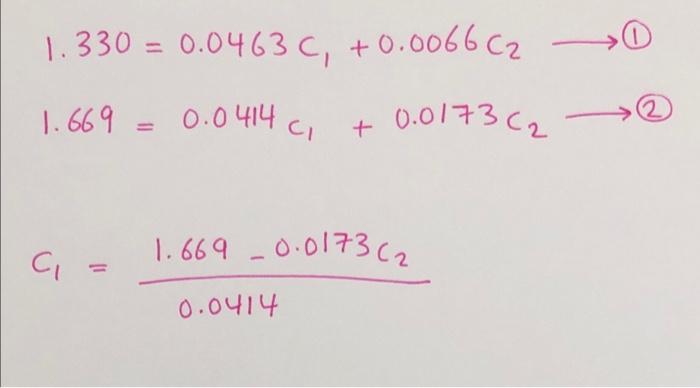 1.330 = 0.0463 C₁ + 0.0066 C₂ ⟶ ①
1.669 = 0.0414 C₁ + 0.0173 C₂ ⟶ ②
C₁ = 1.669 - 0.0173 C₂
0.0414